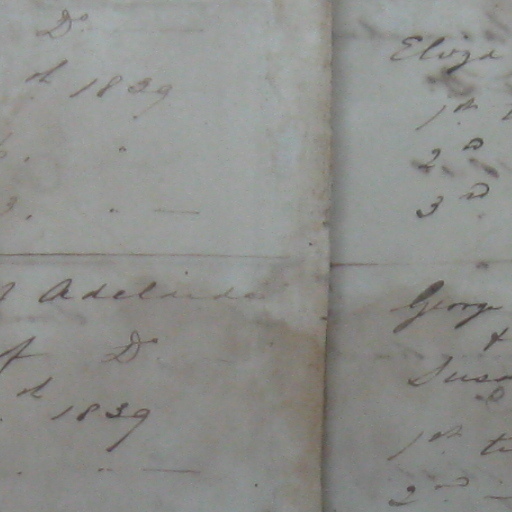 Do
th 1839
3. " —
Adelaide
of Do
th 1839
" —
Eliza
1st t
2nd
3rd
George
&
Susa
1st ti
2nd —